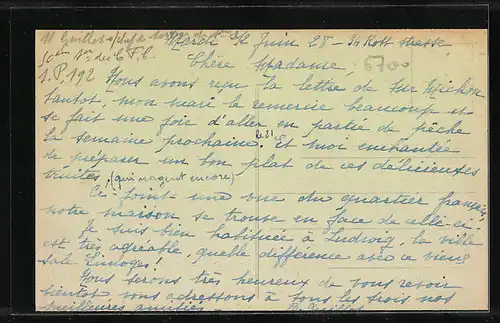 M Guillot s/chef de
50e S.P.192
Mardi 12 Juin 28 - 34 Rott strasse
Chère Madame,
5700
Nous avons reçu la lettre de Mr Michon
tantôt, mon mari le remercie beaucoup et
se fait une joie d'aller en partie de pêche
la semaine prochaine. Et moi enchantée
de préparer un bon plat de ces délicieuses
truites, (qui nagent encore)
Ci-joint une vue du quartier français,
notre maison se trouve en face de celle-ci.
Je suis bien habituée à Ludwig, la ville
est très agréable, quelle différence avec ce vieux
sale Limoges!
Nous serons très heureux de vous revoir
bientôt vous adressons à tous les trois nos
meilleures amitiés -